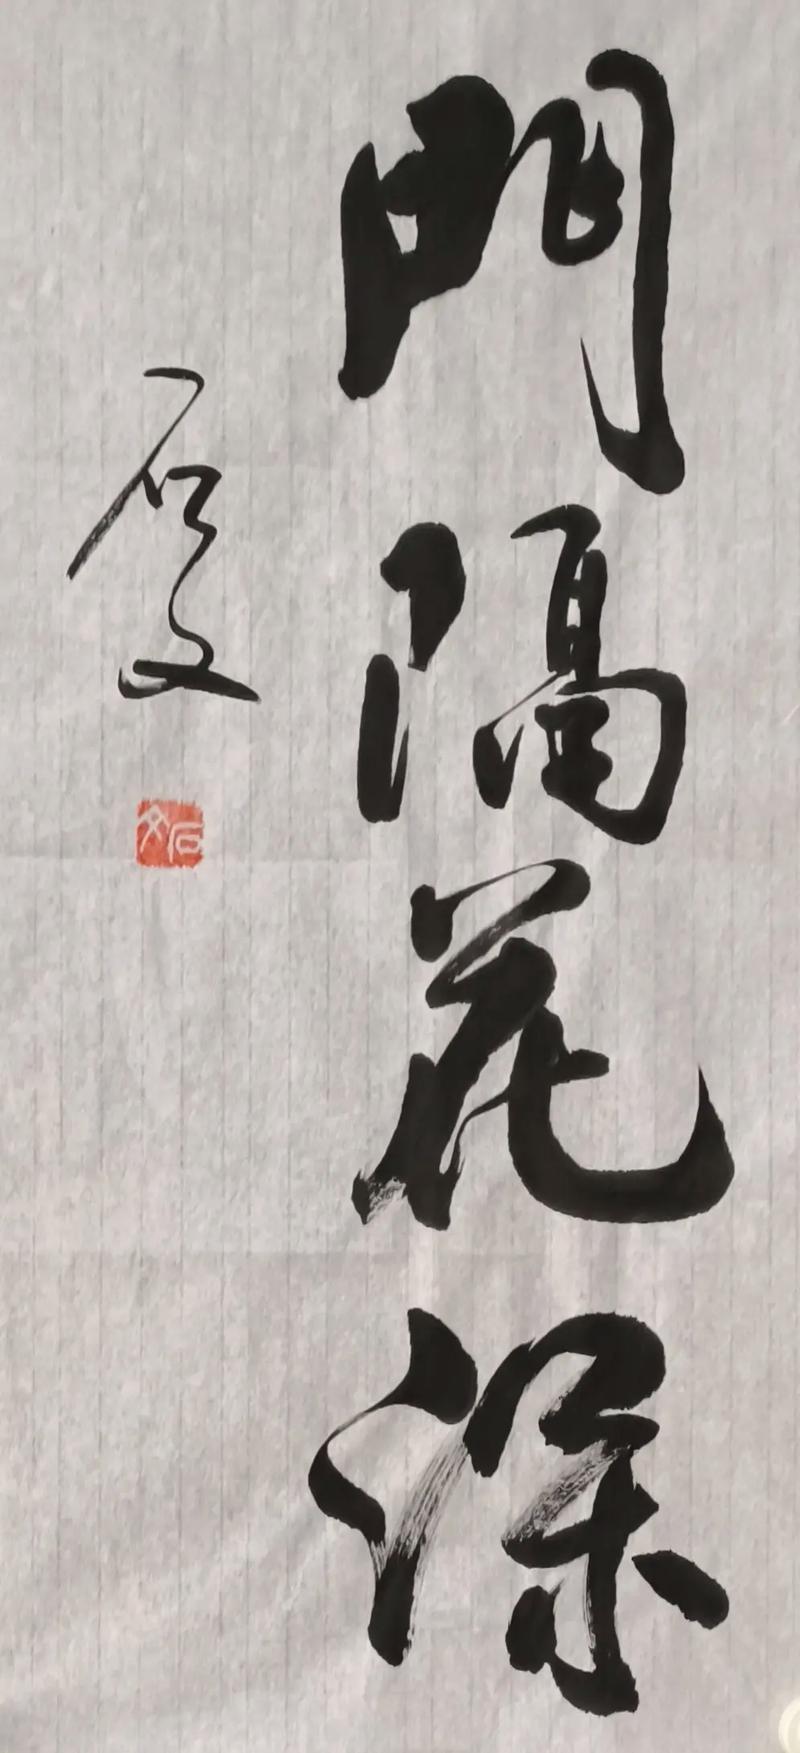 門隔花深
石文
石文